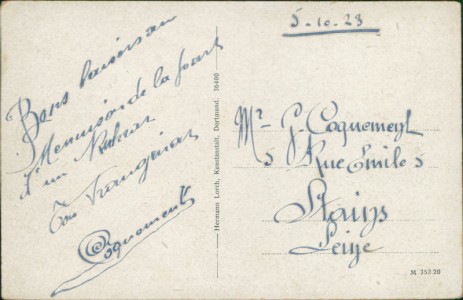 5-10-23
Bons baisers au
Menuisier de la part
d'un
Ton
Coquement
Hermann Lorch, Kunstanstalt, Dortmund. 16400
Mr G. Coquement
5 Rue Emile 5
Stains
Seine
M 353 20